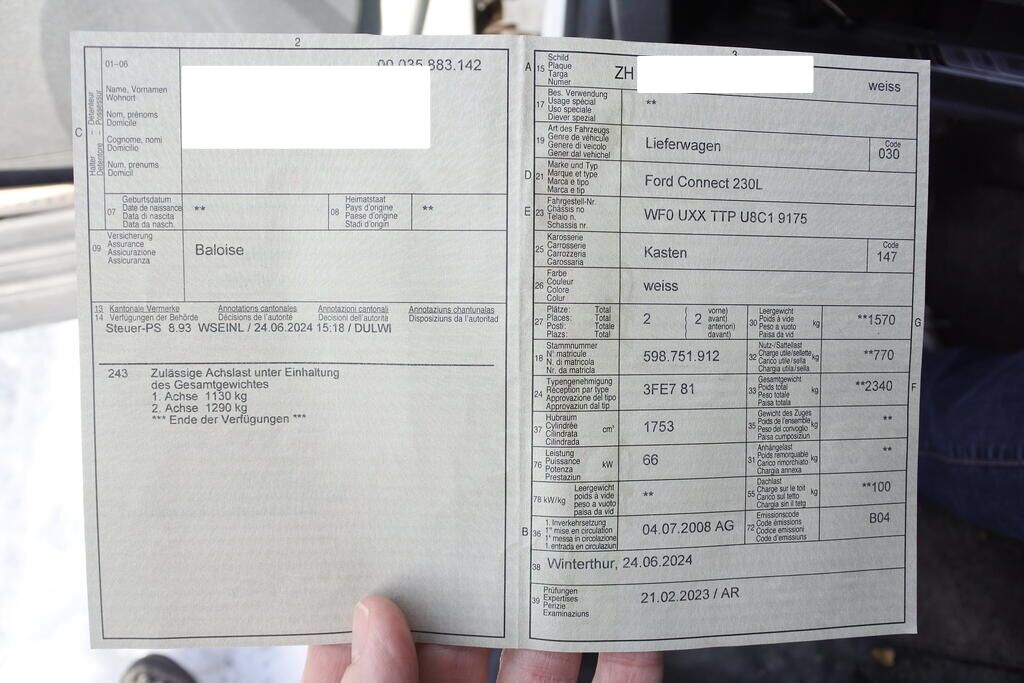 2
01-06
00.035.883.142
C
Halter – Détenteur
Detentore – Possessur
Name, Vornamen
Wohnort
Nom, prénoms
Domicile
Cognome, nomi
Domicilio
Num, prenums
Domicil
07
Geburtsdatum
Date de naissance
Data di nascita
Data da nasch.
**
08
Heimatstaat
Pays d'origine
Paese d'origine
Stadi d'origin
**
09
Versicherung
Assurance
Assicurazione
Assicuranza
Baloise
13
14
Kantonale Vermerke
Verfügungen der Behörde
Annotations cantonales
Décisions de l'autorité
Annotazioni cantonali
Decisioni dell'autorità
Annotaziuns chantunalas
Disposiziuns da l'autoritad
Steuer-PS 8.93 WSEINL / 24.06.2024 15:18 / DULWI
243 Zulässige Achslast unter Einhaltung
des Gesamtgewichtes
1. Achse 1130 kg
2. Achse 1290 kg
*** Ende der Verfügungen ***
3
A
15
Schild
Plaque
Targa
Numer
ZH
weiss
17
Bes. Verwendung
Usage spécial
Uso speciale
Diever spezial
**
19
Art des Fahrzeugs
Genre de véhicule
Genere di veicolo
Gener dal vehichel
Lieferwagen
Code
030
D
21
Marke und Typ
Marque et type
Marca e tipo
Marca e tip
Ford Connect 230L
E
23
Fahrgestell-Nr.
Châssis no
Telaio n.
Schassis nr.
WF0 UXX TTP U8C1 9175
25
Karosserie
Carrosserie
Carrozzeria
Carossaria
Kasten
Code
147
26
Farbe
Couleur
Colore
Colur
weiss
27
Plätze: Total
Places: Total
Posti: Totale
Plazs: Total
2
( 2 vorne)
avant)
anteriori)
davant)
30
Leergewicht
Poids à vide
Peso a vuoto
Paisa da vid
kg
**1570
G
18
Stammnummer
N° matricule
N. di matricola
Nr. da matricla
598.751.912
32
Nutz-/Sattellast
Charge utile/sellette
Carico utile/sella
Chargia utila/sella
kg
**770
24
Typengenehmigung
Réception par type
Approvazione del tipo
Approvaziun dal tip
3FE7 81
33
Gesamtgewicht
Poids total
Peso totale
Paisa totala
kg
**2340
F
37
Hubraum
Cylindrée
Cilindrata
Cilindrada
cm³
1753
35
Gewicht des Zuges
Poids de l'ensemble
Peso del convoglio
Paisa cumposiziun
kg
**
76
Leistung
Puissance
Potenza
Prestaziun
kW
66
31
Anhängelast
Poids remorquable
Carico rimorchiato
Chargia annexa
kg
**
78 kW/kg
Leergewicht
poids à vide
peso a vuoto
paisa da vid
**
55
Dachlast
Charge sur le toit
Carico sul tetto
Chargia sin il tetg
kg
**100
B
36
1. Inverkehrsetzung
1re mise en circulation
1a messa in circolazione
1. entrada en circulaziun
04.07.2008 AG
72
Emissionscode
Code émissions
Codice emissioni
Code d'emissiuns
B04
38
Winterthur, 24.06.2024
39
Prüfungen
Expertises
Perizie
Examinaziuns
21.02.2023 / AR